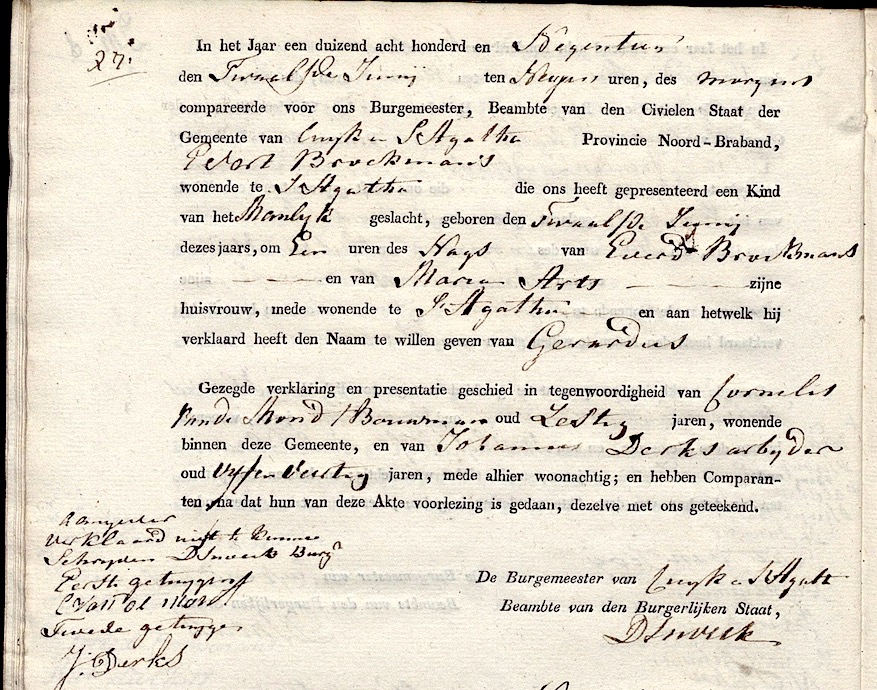 27.
In het Jaar een duizend acht honderd en Negentien
den Twaalfde Junij ten Negen uren, des morgens
compareerde voor ons Burgemeester, Beambte van den Civielen Staat der
Gemeente van Cuyk en St Agatha Provincie Noord-Braband,
Evert Brockmans
wonende te St Agatha die ons heeft gepresenteerd een Kind
van het Manlyk geslacht, geboren den Twaalfde Junij
dezes jaars, om Een uren des van Everd Brockmans
en van Maria Arts zijne
huisvrouw, mede wonende te St Agatha en aan hetwelk hij
verklaard heeft den Naam te willen geven van Gerardus
Gezegde verklaring en presentatie geschied in tegenwoordigheid van Cornelis
van de Mond Bouwman oud Zestig jaren, wonende
binnen deze Gemeente, en van Johannes Derks arbyder
oud Vyf en Veertig jaren, mede alhier woonachtig; en hebben Comparan-
ten, na dat hun van deze Akte voorlezing is gedaan, dezelve met ons geteekend.
Aangever
verklaard niet te kunnen
Schryven Burgr
Eerste getuygen
C van de Mond
Twede getuygen
J. Derks
De Burgemeester van Cuyk en St Agatha
Beambte van den Burgerlijken Staat,